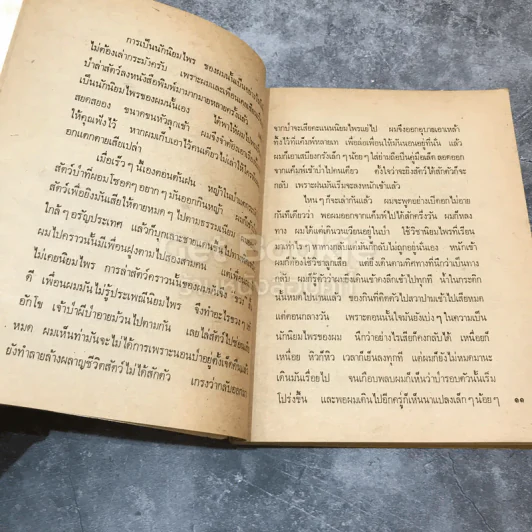 การเป็นนักนิยมไพร ของผมนั้นเป็น
ไม่ต้องเล่ากระมังครับ เพราะผมและเพื่อนเคย
ป่าล่าสัตว์ลงหนังสือพิมพ์มามากมายหลายครั้งแล้ว
เป็นนักนิยมไพรของผมนั้นเอง ได้พาให้ผมไป
สยดสยอง ขนาดขนหัวลุกเข้า ผมจึงจำต้อง
ให้คุณฟังไว้ หากผมเก็บเอาไว้คนเดียวไม่เล่าให้ใคร
อกแตกตายเสียเปล่า
เมื่อเร็วๆนี้เองตอนต้นฝน หญ้าในป่า
สัตว์ป่าที่อพยพโซอดๆอยากๆมันออกกินหญ้า
สัตว์เพื่อยิงมันเสียให้ตายหมดๆไปตามธรรมเนียม
ใกล้ๆอรัญประเทศ แล้วก็บุก
ผมไปคราวนั้นมีเพื่อนฝูงตามไปสองสามคน
ไม่เคยนิยมไพร การล่าสัตว์คราวนั้นของผมนั้นจึง
ดี เพื่อนผมมันไม่รู้ประเพณีนิยมไพร จึงทำอะไร
อักโข เจ้าป่าผีป่าอายม้วนไปตามกัน เลยไล่สัตว์ไปซ่อน
หมด ผมเห็นท่ามันจะไม่ได้การเพราะนอนป่าอยู่ตั้งเจ็ดคืนแล้ว
ยังทำลายล้างผลาญชีวิตสัตว์ไม่ได้สักตัว เกรงว่ากลับออกมา
จากป่าจะเสียคะแนนนิยมไพรแย่ไป ผมจึงออกอุบายเอาเหล้า
ทิ้งไว้ที่แค้มพ์หลายเท เพื่อล่อเพื่อนให้มันนอนแอ้อยู่ที่นั่น แล้ว
ผมก็เอาเสบียงกรังเล็กๆน้อยๆใส่ย่ามถือปืนคู่มือผลัด ลอดออก
จากแค้มพ์เข้าป่าไปคนเดียว ตั้งใจว่าจะยิงสัตว์ได้สักตัวก็จะ
กลับ เพราะฝนมันเริ่มจะลงหนักเข้าแล้ว
ไหนๆก็จะกลับกันแล้ว ผมจะพูดอย่างเปิดอกไม่อาย
กันทีเดียวว่า พอผมออกจากแค้มพ์ไปได้สักครึ่งวัน ผมก็หลง
ทาง ผมได้แต่เดินวนเวียนอยู่ในป่า ใช้วิชานิยมไพรที่เรียน
มาเท่าไรๆหาทางกลับแต่มันก็กลับไม่ถูกอยู่นั่นเอง หนักเข้า
ผมก็ต้องใช้วิชาลูกเสือ แต่ครั้นเดินตามทิศทางที่นึกว่าเป็นทาง
กลับ ผมก็รู้ตัวว่าผมยิ่งเดินเข้าดงลึกเข้าไปทุกที น้ำในกระติก
นั้นหมดไปนานแล้ว ของกินที่ติดตัวไปลวกปามเข้าไปเสียหมด
แต่ตอนกลางวัน เพราะตอนนั้นใจมันยังเบ่งๆในความเป็น
นักนิยมไพรของผม นึกว่าอย่างไรเสียก็คงกลับได้ เหนื่อยก็
เหนื่อย หิวก็หิว เวลาก็เย็นลงทุกที แต่ผมก็ยังไม่หมดมานะ
เดินมันเรื่อยไป จนเกือบพลบผมก็เห็นว่าป่ารอบตัวนั้นเริ่ม
โปร่งขึ้น และพอผมเดินไปอีกครู่ก็เห็นนาแปลงเล็กๆน้อยๆ
๑๑